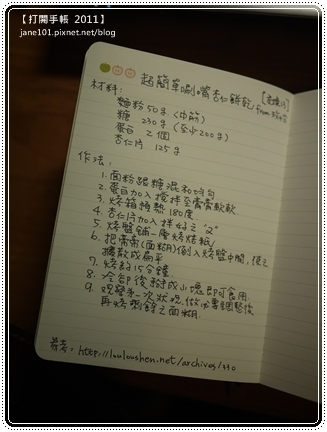 【打開手帳 2011】
jane101.pixnet.net/blog
超簡單刷嘴杏仁餅乾
材料:
麵粉 50g (中筋)
糖 230g (至少200g)
蛋白 2個
杏仁片 125g
作法:
1. 面粉跟糖混和均勻
2. 蛋白加入攪拌至膏膏軟軟
3. 烤箱預熱 180度
4. 杏仁片加入拌好之"2"
5. 烤盤鋪一層烤焙紙
6. 把膏膏(面糊)倒入烤盤中間, 使之
擴散成扁平
7. 烤約15分鐘
8. 冷卻後掰成小塊即可食用
9. 觀察第一次狀況, 做必要調整後
再烤剩餘之面糊.
參考: http://louloushen.net/archives/330